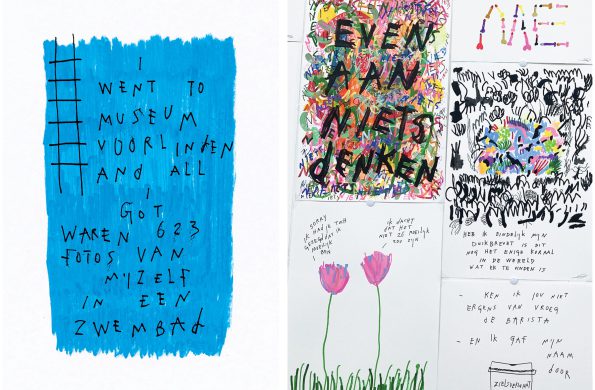 I
WENT TO
MUSEUM
VOORLINDEN
AND ALL
I
GOT
WAREN 623
FOTOS VAN
MIJZELF
IN EEN
ZWEMBAD
EVEN
AAN
NIETS
DENKEN
SORRY
IK HAD JE TOCH
GEZEGD DAT IK
MOEILIJK
BEN
IK DACHT
DAT HET
NIET ZO MOEILIJK
ZOU ZIJN
HEB IK EINDELIJK MIJN
DUIKBREVET IS DIT
NOG HET ENIGE KORAAL
IN DE WERELD
WAT ER TE VINDEN IS
- KEN IK JOU NIET
ERGENS VAN VROEG
DE BARISTA
- EN IK GAF MIJN
NAAM
DOOR